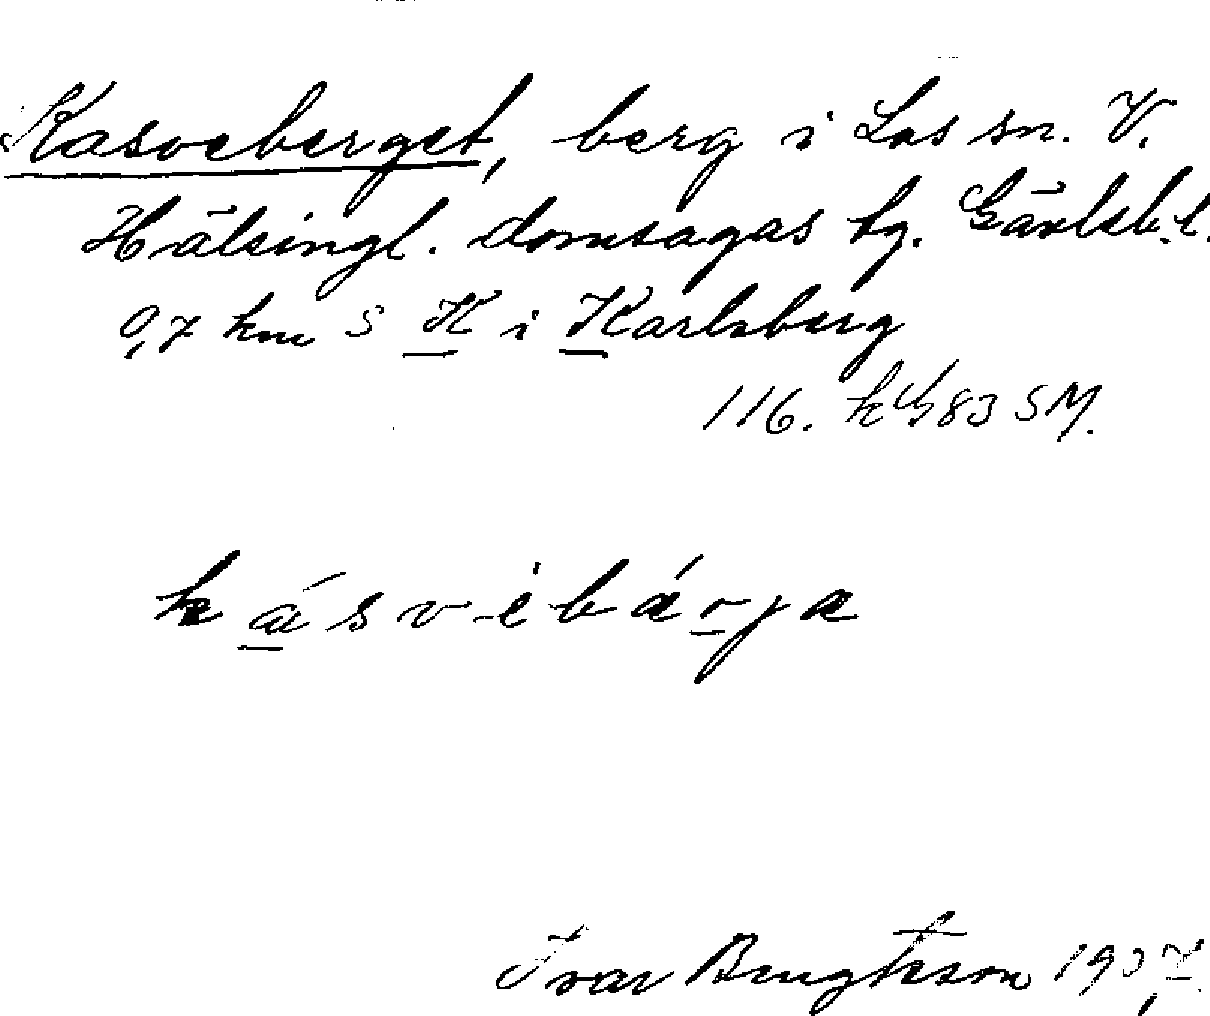 Kasveberget, berg i Los sn. V.
Hälsingl. domsagas tg. Gävleb. l.
0,7 km S K i Karlsberg
116. 83 SM.
kásvèbárja
Ivar Bengtsson